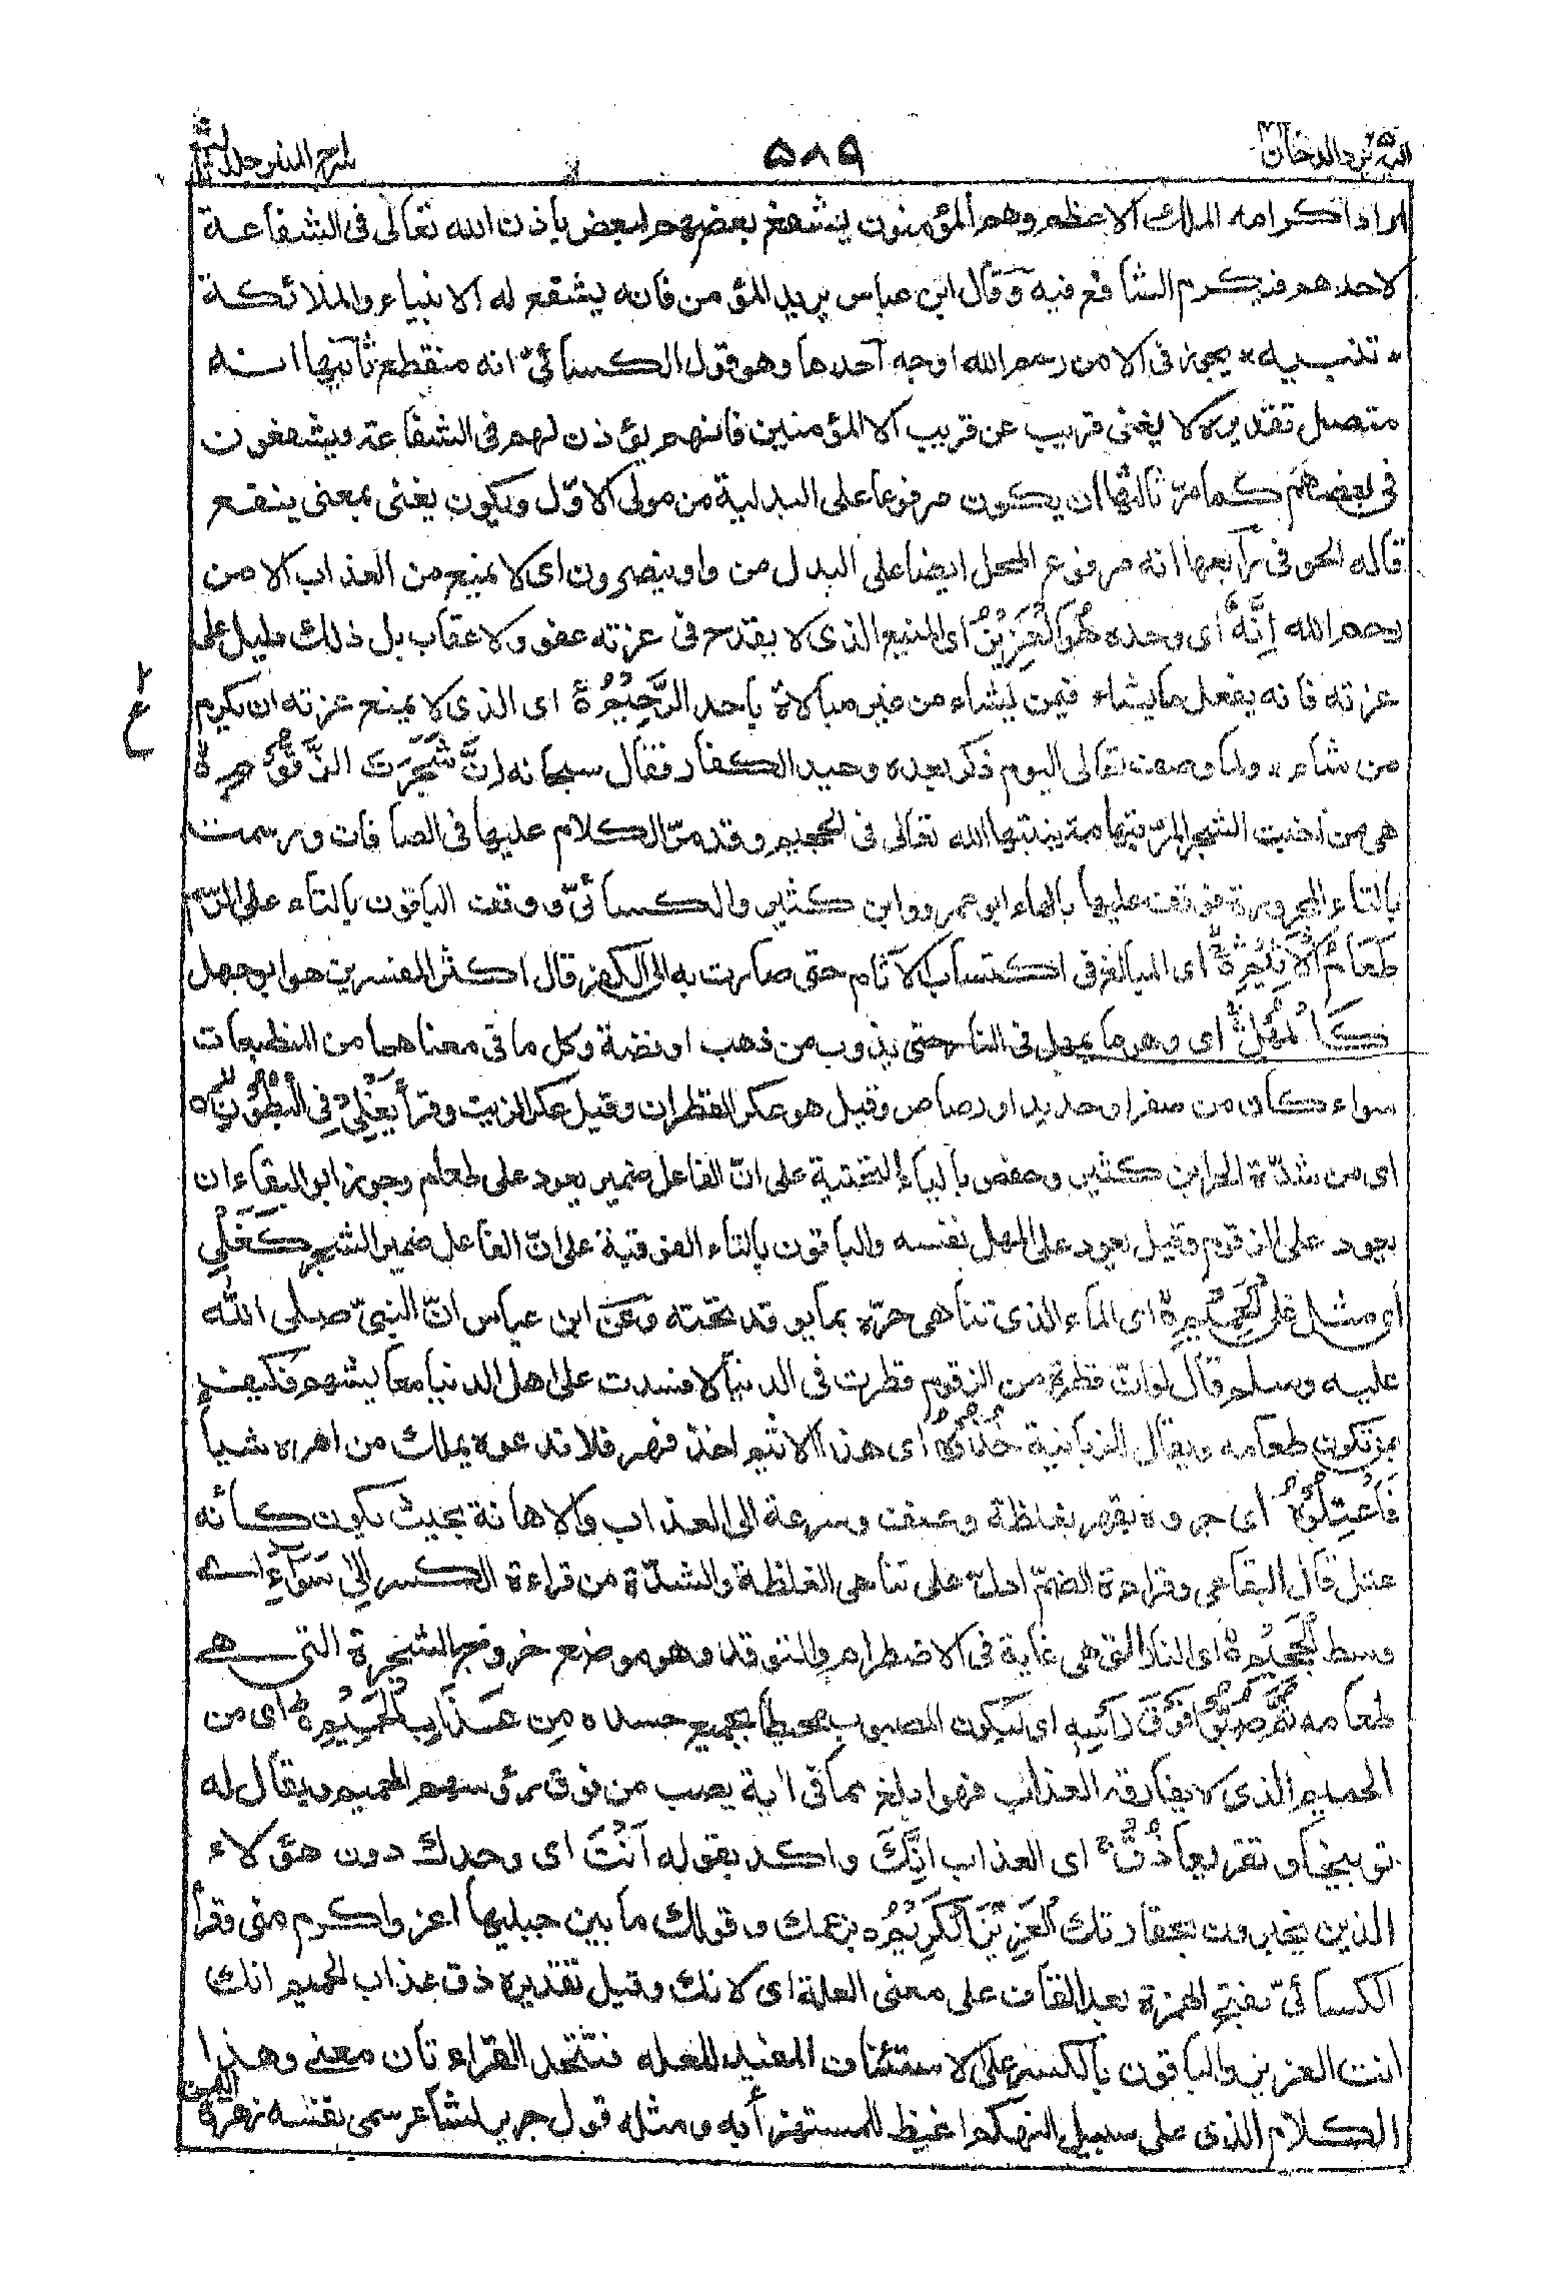 اليه يرد الدخان
٥٨٩
السراج المنير جلد
اراد اكرامه الملك الاعظم وهم المؤمنون يشفع بعضهم لبعض باذن الله تعالى فى الشفاعة
لاحدهم فيكرم الشافع فيه وقال ابن عباس يريد المؤمن فانه يشفع له الانبياء والملائكة
* تنبيه * يجوز فى الا من رحم الله اوجه آحدها وهو قول الكسائىّ انه منقطع ثآنيها انه
متصل تقديره لا يغنى قريب عن قريب الا المؤمنين فانهم يؤذن لهم فى الشفاعة ويشفعون
فى بعضهم كما مرّ ثالثها ان يكون مرفوعا على البدلية من مولى الاوّل ويكون يغنى بمعنى ينفع
قاله الحوفى رآبعها انه مرفوع المحل ايضا على البدل من واو ينصرون اى لا يمنع من العذاب الا من
رحم الله اِنَّهٗ اى وحده هُوَ الْعَزِيْزُ اى المنيع الذى لا يقدح فى عزته عفو ولا عقاب بل ذلك دليل على
عزته فانه يفعل ما يشاء فيمن يشاء من غير مبالاة باحد الرَّحِيْمُ اى الذى لا يمنع عزته ان يكرم
من شاء * ولما وصف تعالى اليوم ذكر بعده وعيد الكفار فقال سبحانه اِنَّ شَجَرَتَ الزَّقُّوْمِ
هى من اخبث الشجر المرّ بتهامة ينبتها الله تعالى فى الجحيم وقد مرّ الكلام عليها فى الصافات ورسمت
بالتاء المجرورة فوقف عليها بالهاء ابو عمرو وابن كثير والكسائىّ ووقف الباقون بالتاء على الرسم
طَعَامُ الْاَثِيْمِ اى المبالغ فى اكتساب الآثام حتى صارت به الى الكفر قال اكثر المفسرين هو ابو جهل
كَالْمُهْلِ اى وهو ما يمهل فى النار حتى يذوب من ذهب او فضة وكل ما فى معناهما من المنطبعات
سواء كان من صفر او حديد او رصاص وقيل هو عكر القطران وقيل عكر الزيت وقرأ يَغْلِيْ فِى الْبُطُوْنِ
اى من شدّة الحرّ ابن كثير وحفص بالياء التحتية على انّ الفاعل ضمير يعود على طعام وجوز ابو البقاء ان
يعود على الزقوم وقيل يعود على المهل نفسه والباقون بالتاء الفوقية على انّ الفاعل ضمير الشجر كَغَلْيِ
اى مثل غلى الْحَمِيْمِ اى الماء الذى تناهى حرّه بما يوقد تحته وعن ابن عباس انّ النبىّ صلى الله
عليه وسلم قال لو انّ قطرة من الزقوم قطرت فى الدنيا لافسدت على اهل الدنيا معايشهم فكيف
بمن تكون طعامه ويقال للزبانية خُذُوْهُ اى هذا الاثيم اخذ قهر فلا تدعوه يملك من امره شيأ
فَاعْتِلُوْهُ اى جروه بقهر بغلظة وعنف وسرعة الى العذاب والاهانة بحيث يكون كأنه
عتل قال البقاعى وقراءة الضمّ ادلّ على تناهى الغلظة والشدّة من قراءة الكسر اِلٰى سَوَآءِ اى
وسط الْجَحِيْمِ اى النار التى هى غاية فى الاضطرام والتوقد وهو موضع خروج الشجرة التى هى
طعامه ثُمَّ صُبُّوْا فَوْقَ رَاْسِهٖ اى ليكون المصبوب محيطا بجميع جسده مِنْ عَذَابِ الْحَمِيْمِ اى من
الحميم الذى لا يفارقه العذاب فهو ابلغ مما فى آية يصب من فوق رؤسهم الحميم ويقال له
توبيخا وتقريعا ذُقْ اى العذاب اِنَّكَ واكد بقوله اَنْتَ اى وحدك دون هؤلاء
الذين يخبرون بحقارتك الْعَزِيْزُ الْكَرِيْمُ بزعمك وقولك ما بين جبليها اعز واكرم منى وقرأ
الكسائىّ بفتح الهمزة بعد القاف على معنى العلة اى لانك وقيل تقديره ذق عذاب الحميم انك
انت العزيز والباقون بالكسر على الاستئناف المفيد للعلة فتتحد القراءتان معنى وهذا
الكلام الذى على سبيل التهكم اغيظ للمستهزأ به ومثله قول جرير لشاعر سمى نفسه زهرة
اليمن
ع